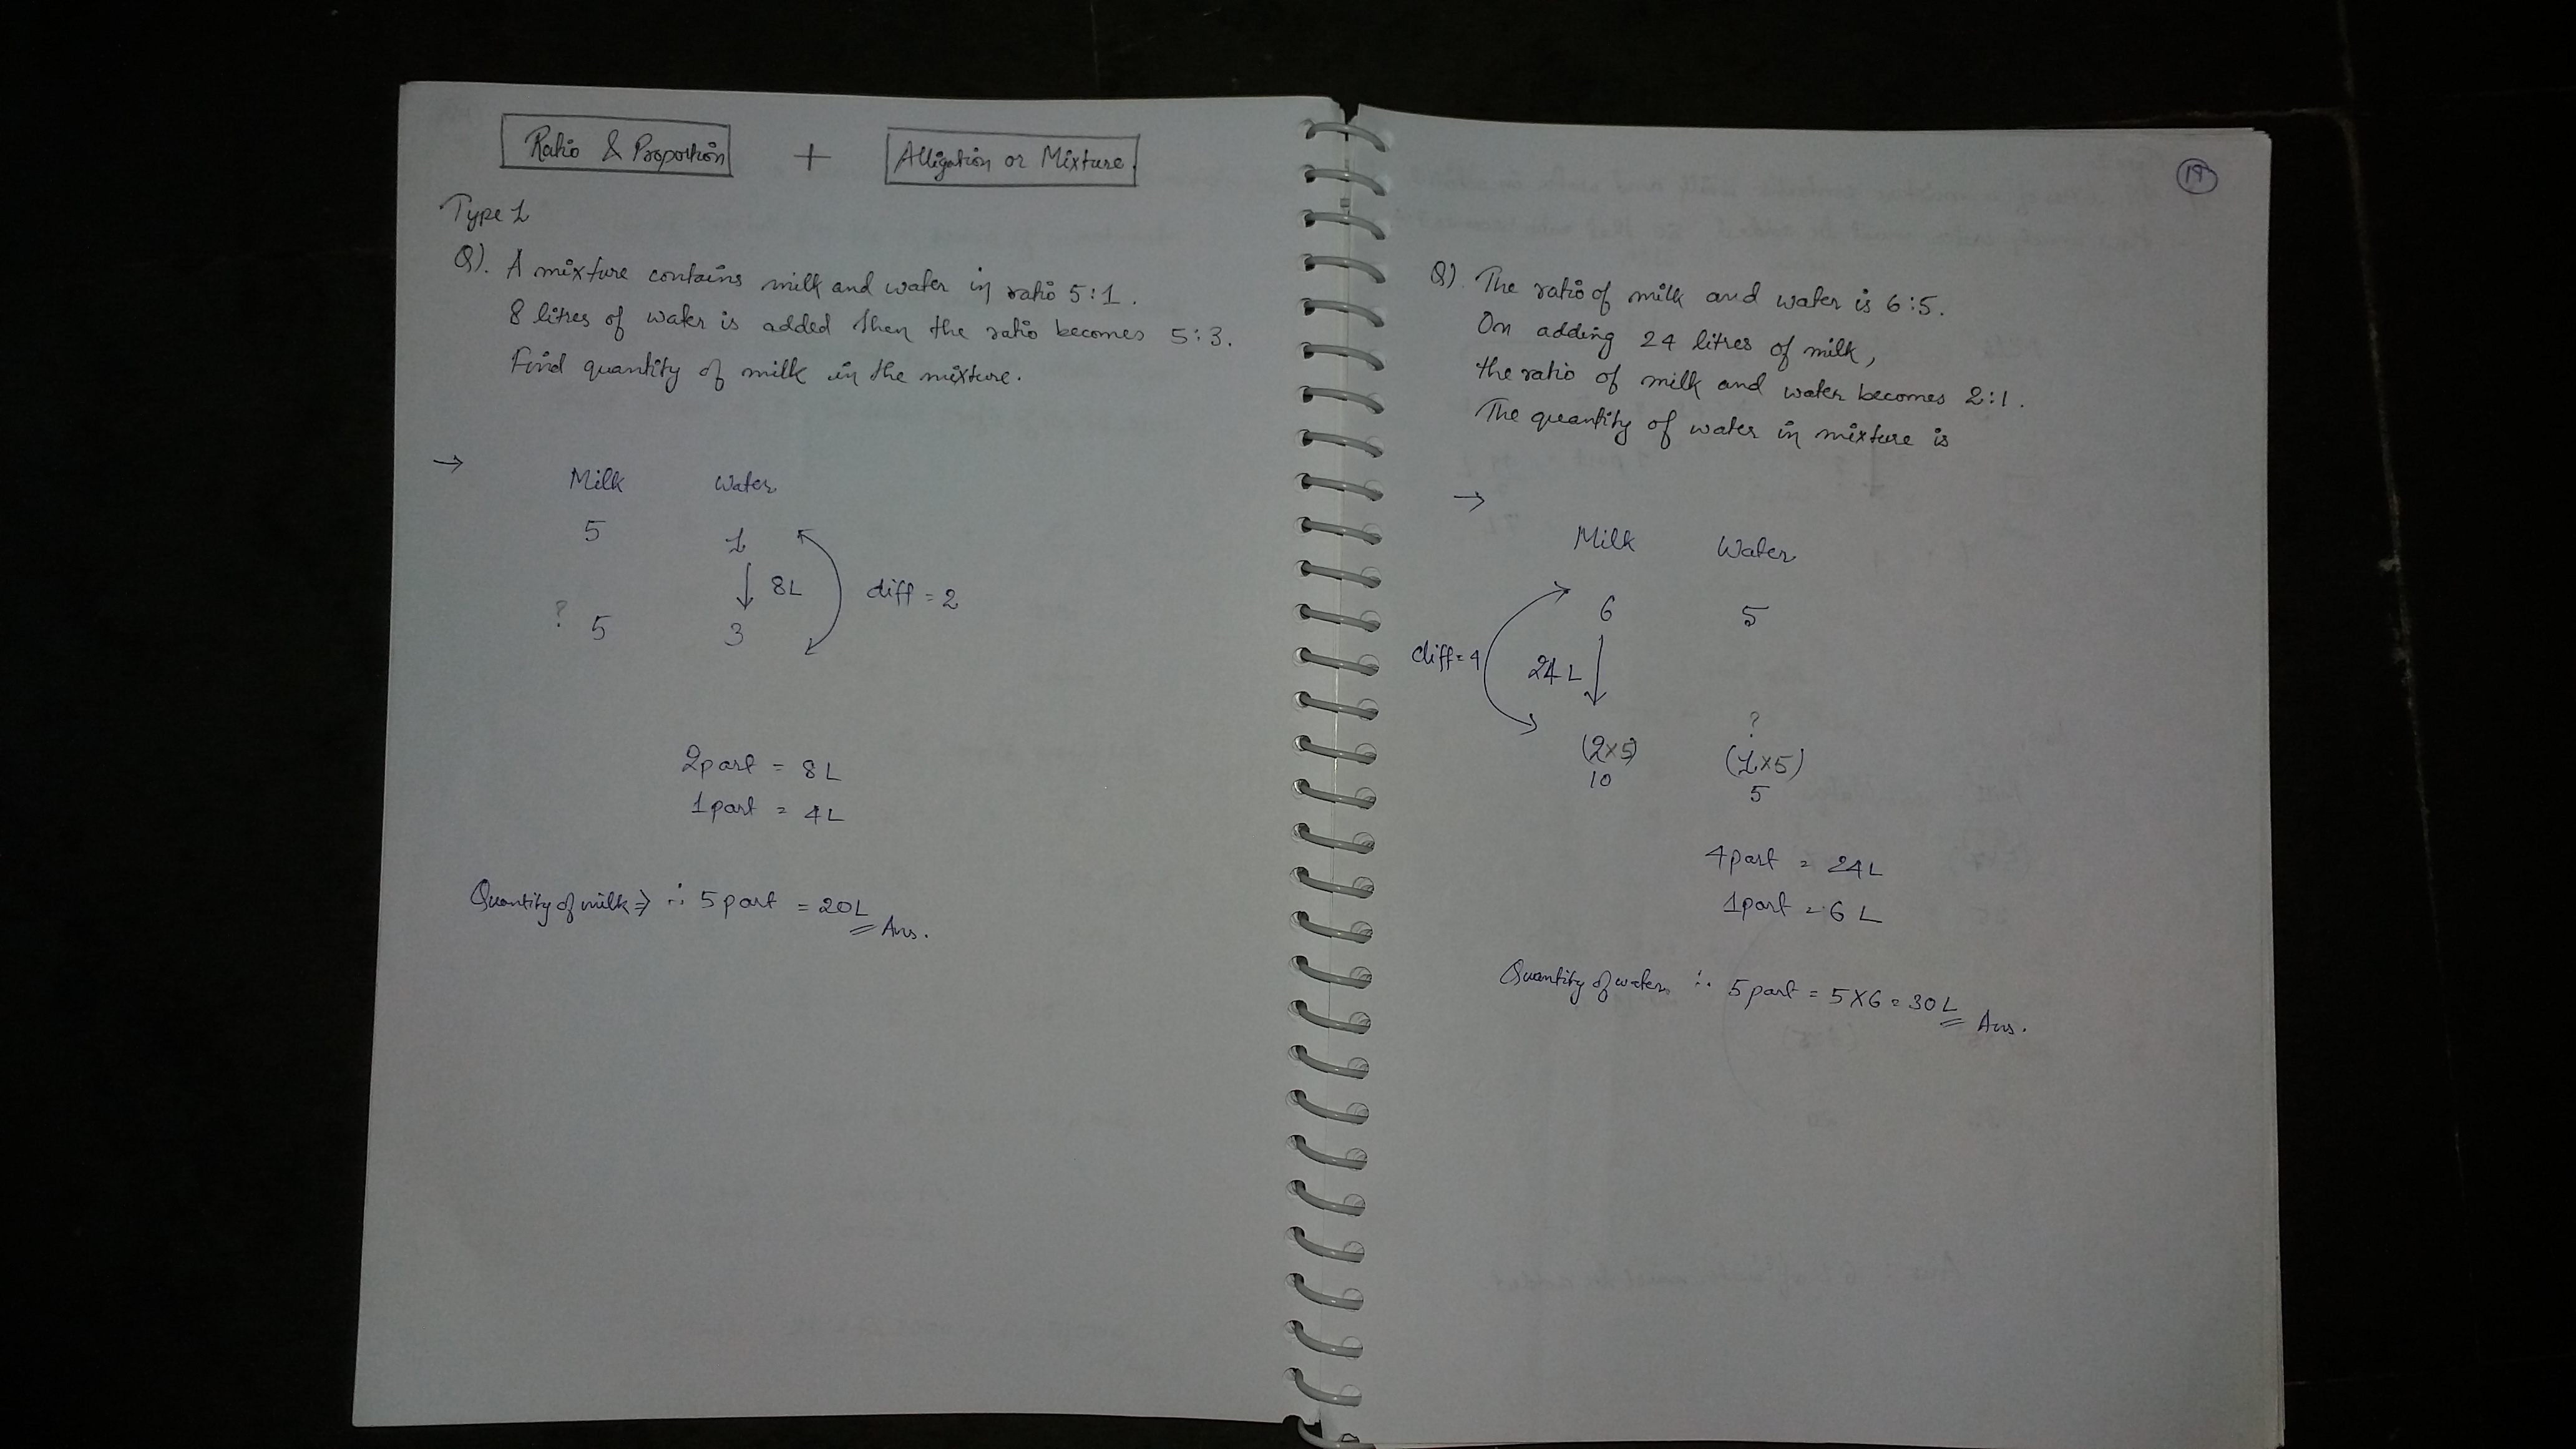 Ratio & Proportion + Alligation or Mixture.
Type 1
Q). A mixture contains milk and water in ratio 5:1.
8 litres of water is added then the ratio becomes 5:3.
Find quantity of milk in the mixture.
→
Milk Water
5 1
8L diff = 2
? 5 3
2part = 8L
1part = 4L
Quantity of milk ⇒ ∴ 5 part = 20L Ans.
19
Q). The ratio of milk and water is 6:5.
On adding 24 litres of milk,
the ratio of milk and water becomes 2:1.
The quantity of water in mixture is
→
Milk Water
6 5
diff = 4 24L
?
(2×5) (1×5)
10 5
4part = 24L
1part = 6L
Quantity of water ∴ 5part = 5×6 = 30L Ans.